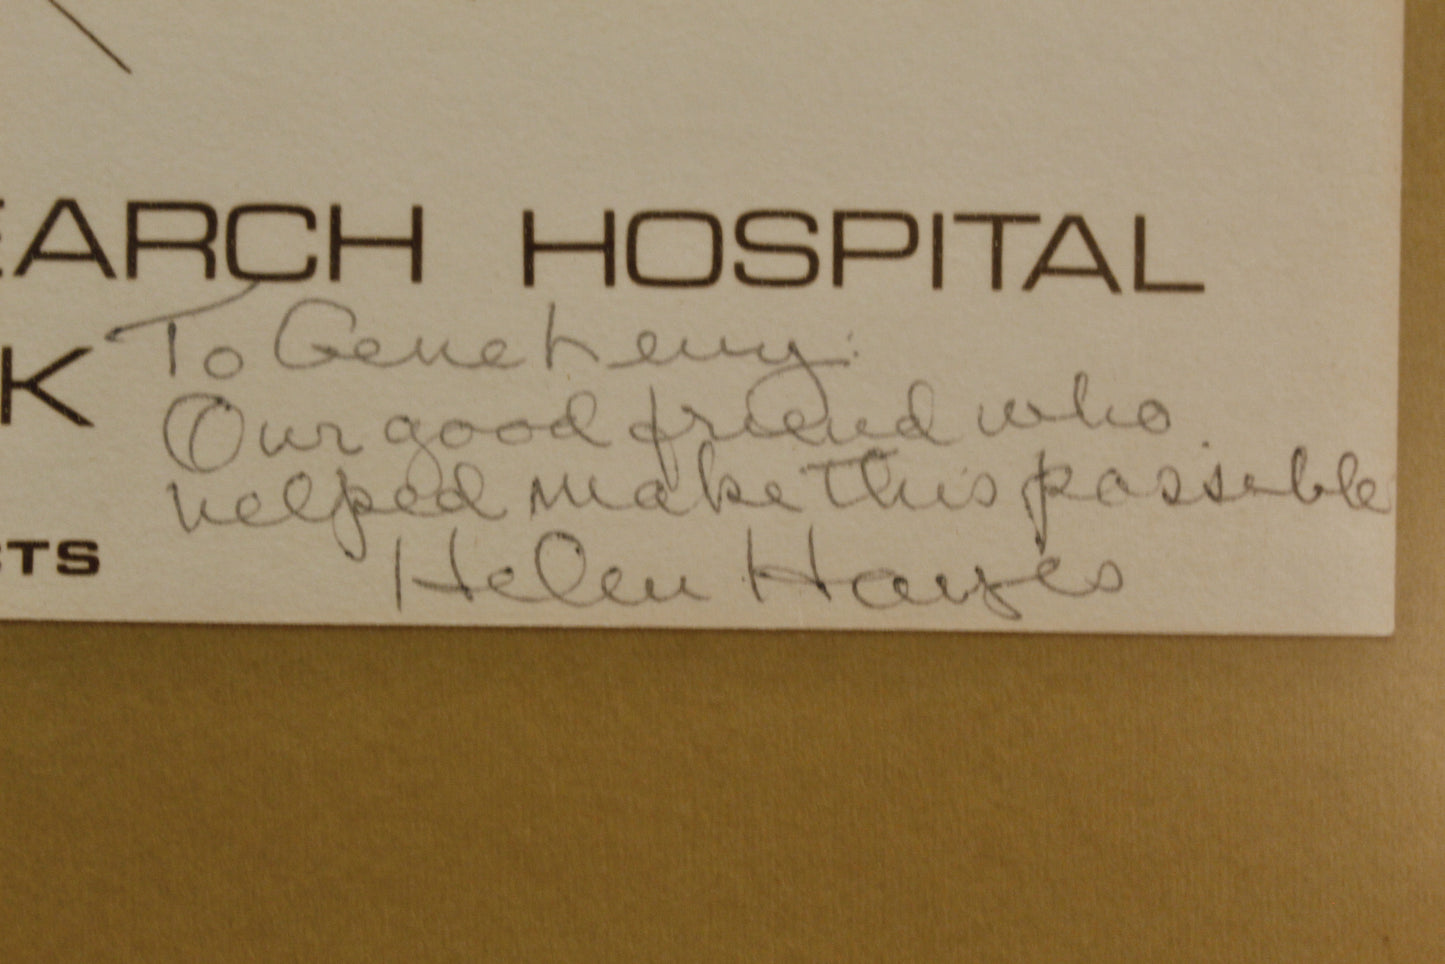 EARCH HOSPITAL
K
To Gene Levy:
Our good friend who
helped make this possible
CTS
Helen Hayes